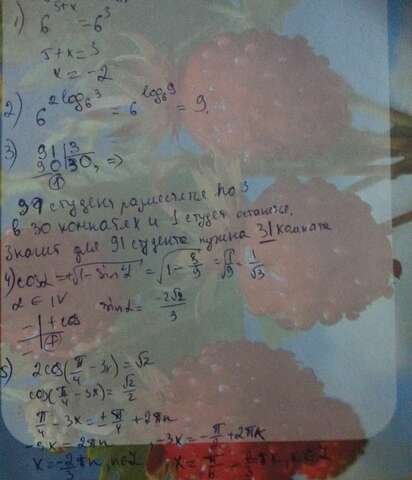 1) 6^{5+x} = 6^3
5+x=3
x=-2
2) 6^{2log_6 3} = 6^{log_6 9} = 9.
3) 91 | 3
90 | 30, =>
①
студент разместятся по 3
в 30 комнатах и 1 студент останется.
Значит для 91 студента нужна 31 комната
4) cosα = +√(1-sin²α) = √(1-8/9) = √(1/9) = 1/√3
α ∈ IV sinα = -2√2/3
+ cos
5) 2cos(π/4 - 3x) = √2
cos(π/4 - 3x) = √2/2
π/4 - 3x = ±π/4 + 2πn
-3x = 2πn ; -3x = -π/2 + 2πk
x = -2/3 πn, n∈Z ; x = π/6 - 2/3 πk, k∈Z